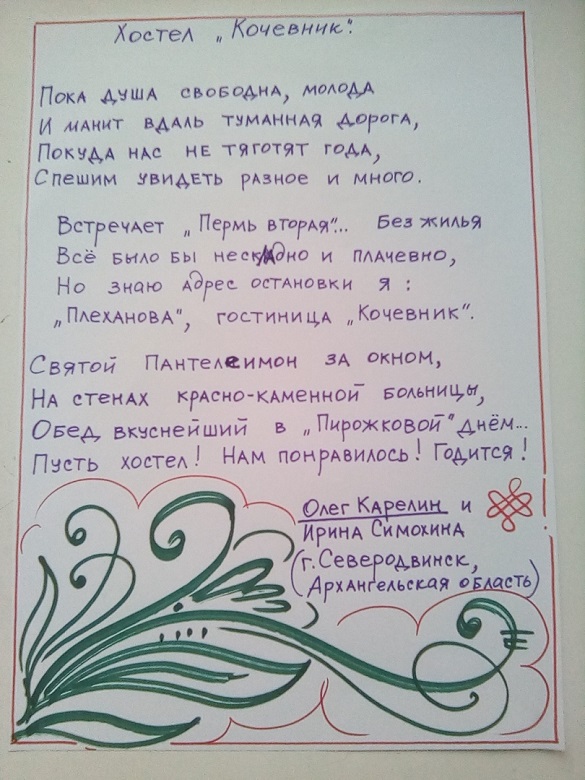 Хостел „Кочевник".
Пока душа свободна, молода
И манит вдаль туманная дорога,
Покуда нас не тяготят года,
Спешим увидеть разное и много.
Встречает „Пермь вторая"... Без жилья
Всё было бы нескладно и плачевно,
Но знаю адрес остановки я:
„Плеханова", гостиница „Кочевник".
Святой Пантелеимон за окном,
На стенах красно-каменной больницы,
Обед вкуснейший в „Пирожковой" днём...
Пусть хостел! Нам понравилось! Годится!
Олег Карелин и
Ирина Симохина
(г. Северодвинск,
Архангельская область)